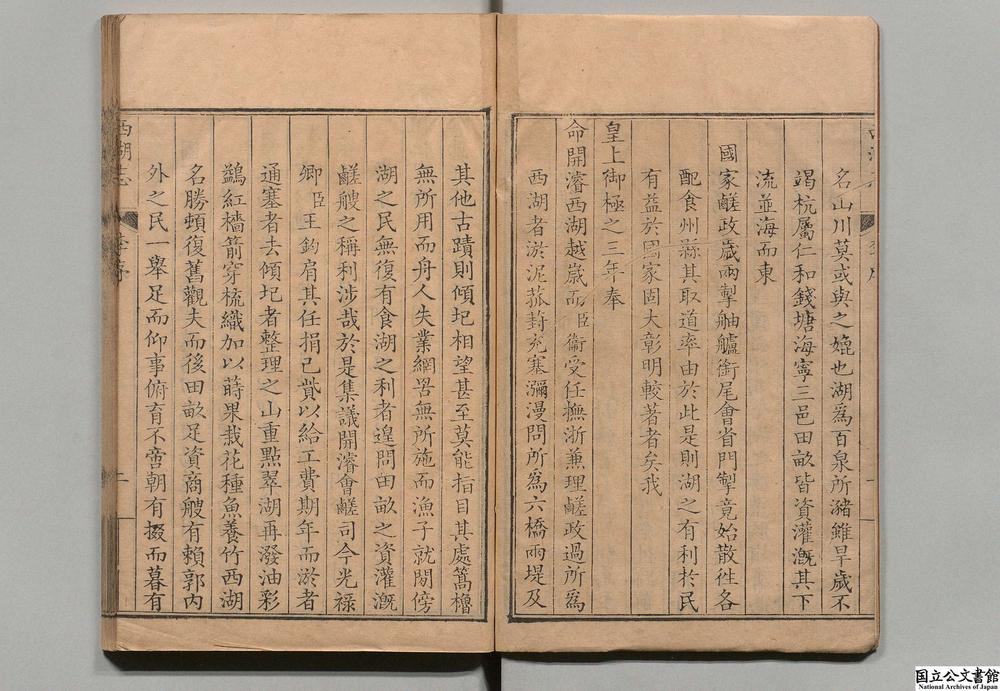 名山川莫或與之媲也湖爲百泉所瀦雖旱歲不
竭杭屬仁和錢塘海寧三邑田畝皆資灌漑其下
流並海而東
國家鹺政歲兩掣舳艫銜尾會省門掣竟始散徃各
配食州縣其取道率由於此是則湖之有利於民
有益於國家固大彰明較著者矣我
皇上御極之三年奉
命開濬西湖越歲而臣衞受任撫浙兼理鹺政過所爲
西湖者淤泥菰葑充塞瀰漫問所爲六橋兩堤及
其他古蹟則傾圮相望甚至莫能指目其處篙櫓
無所用而舟人失業網罟無所施而漁子就閒傍
湖之民無復有食湖之利者遑問田畝之資灌漑
鹺艘之稱利涉哉於是集議開濬會鹺司今光祿
卿臣王鈞肩其任捐己貲以給工費期年而淤者
通塞者去傾圮者整理之山重點翠湖再潑油彩
鷁紅檣箭穿梳織加以蒔果栽花種魚養竹西湖
名勝頓復舊觀夫而後田畝足資商艘有賴郭內
外之民一舉足而仰事俯育不啻朝有掇而暮有
西湖志
國立公文書館
National Archives of Japan